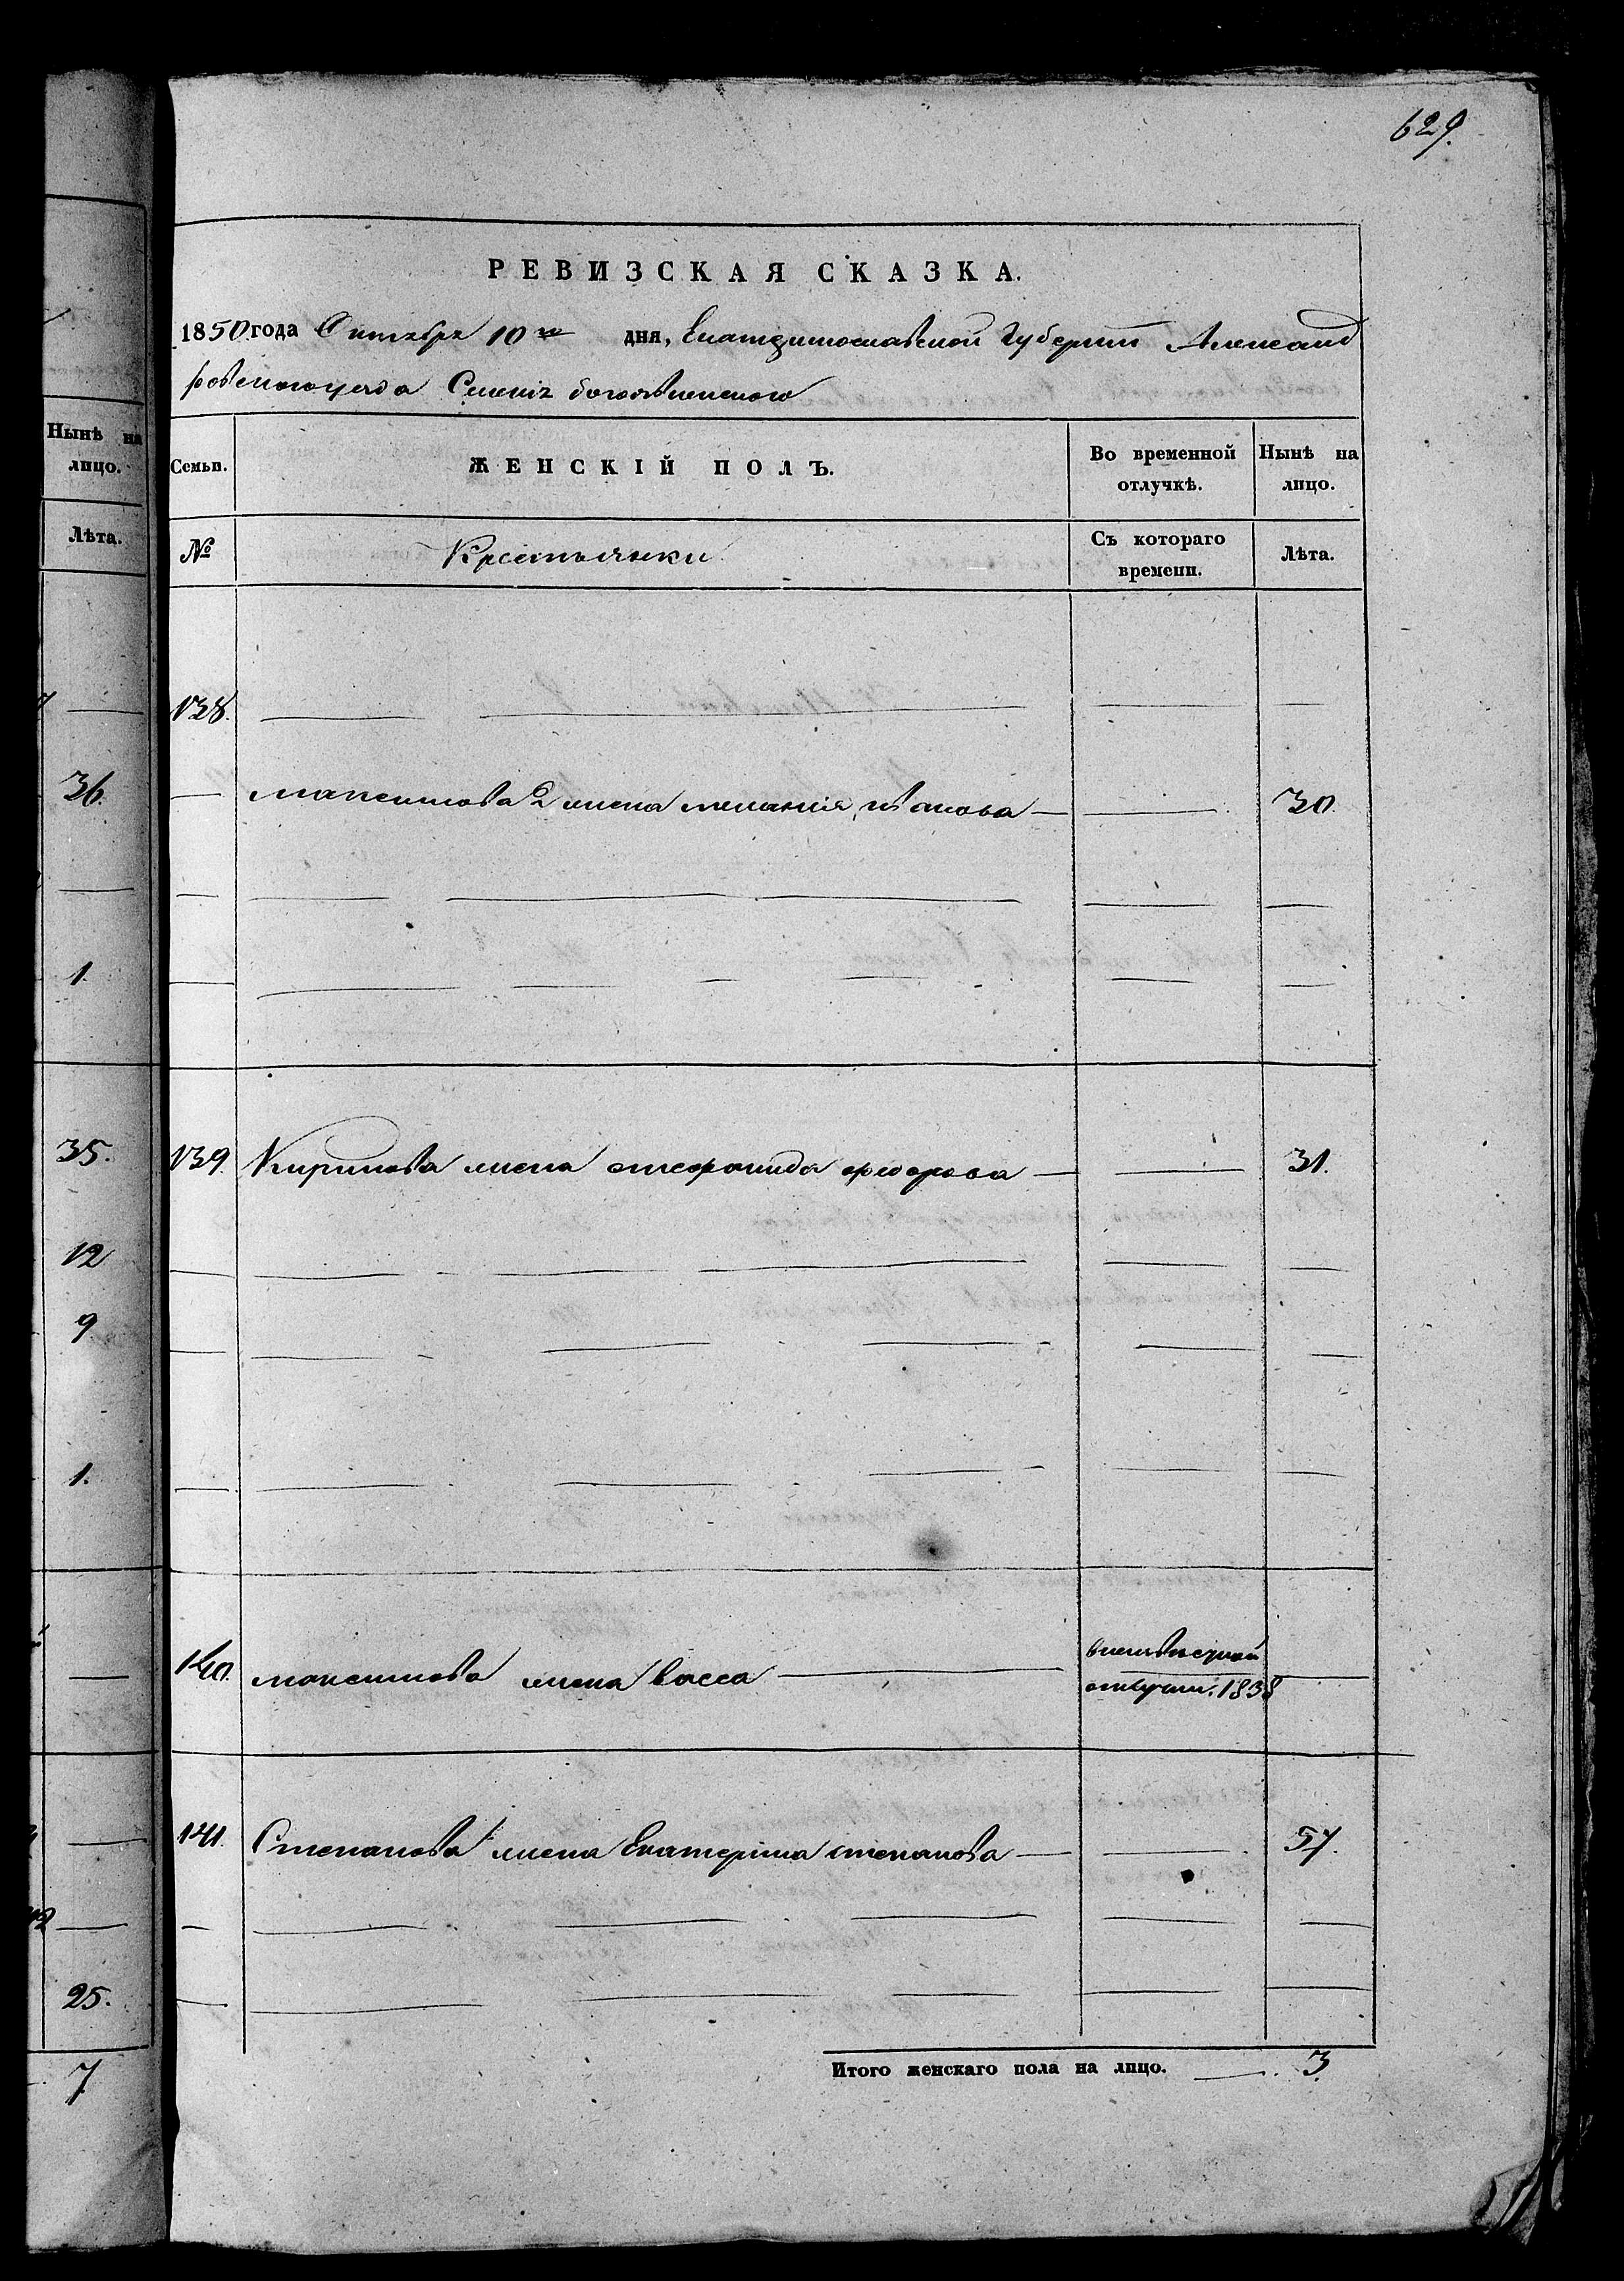 629.
РЕВИЗСКАЯ СКАЗКА.
1850 года Октября 10го дня, Екатеринославской Губернии Александ
ровского уезда Селения богоявленского
Нынѣ на лицо.
Лѣта.
Семьи.
ЖЕНСКІЙ ПОЛЪ.
Во временной отлучкѣ.
Нынѣ на лицо.
№
Крестьянки
Съ котораго времени.
Лѣта.
138.
36.
максимова 2 жена мелания иванова 30.
1.
35.
139. Кирилова жена федорова 31.
12
9
1.
140. максимова жена васса отлучки. 1838
141. Степанова 1 жена Екатерина степанова 57.
25.
7
Итого женскаго пола на лицо. 3